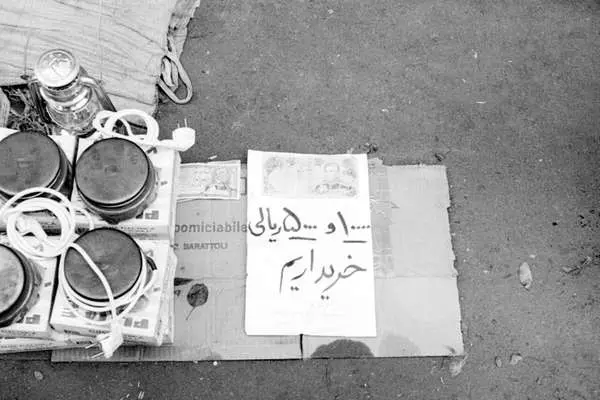 ۱۰۰۰۰ و ۵۰۰۰ ریالی
خریداریم
pomiciabile
BARATTOLI